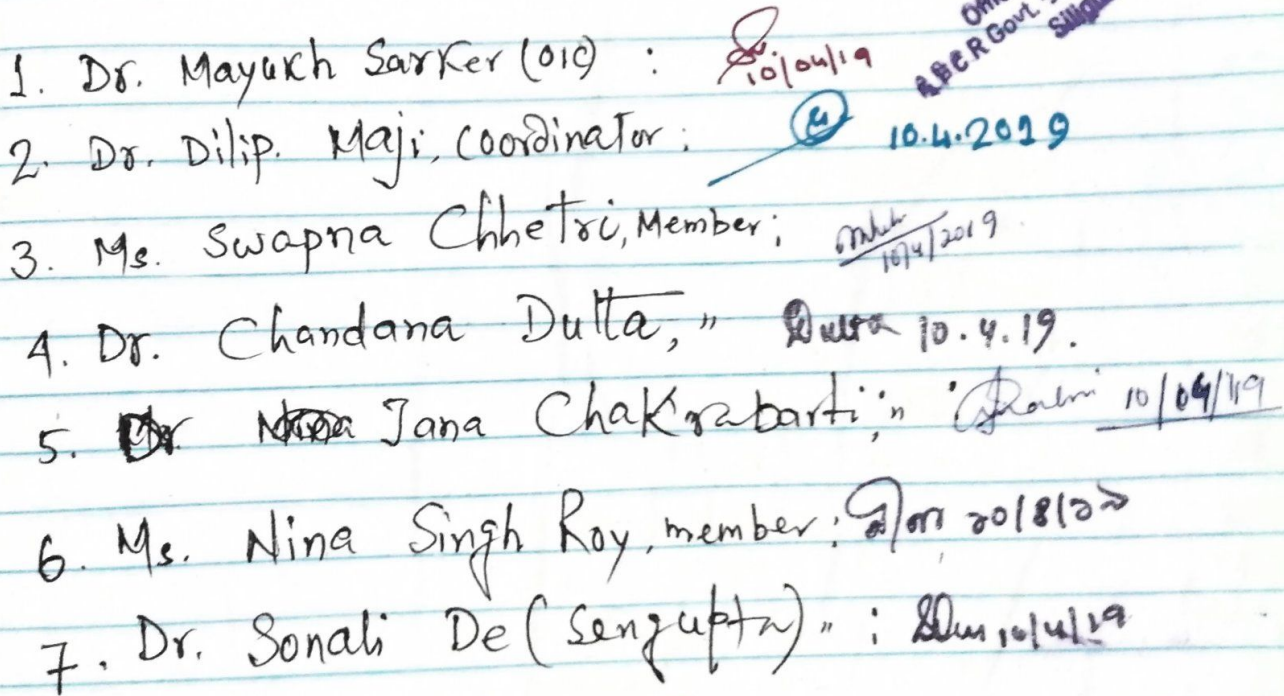 A B C R Govt
1. Dr. Mayukh Sarker (OIC) : 10/04/19
2. Dr. Dilip. Maji, Coordinator: 10.4.2019
3. Ms. Swapna Chhetri, Member; 10/4/2019
4. Dr. Chandana Dutta, " Dutta 10.4.19.
5. Jana Chakrabarti, " 10/04/19
6. Ms. Nina Singh Roy, member: ১০/৪/১৯
7. Dr. Sonali De (Sengupta) " : 10/4/19